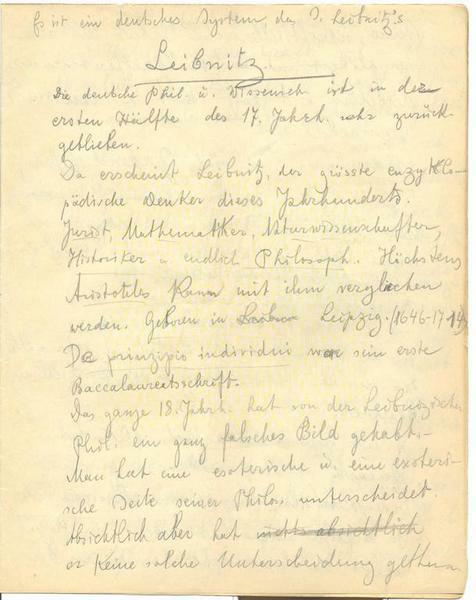 Es ist ein deutsches System, des J. Leibnitz's
Leibnitz
Die deutsche Phil. u. Wissensch ist in der
ersten Hälfte des 17. Jahrh. sehr zurück-
geblieben.
Da erscheint Leibnitz, der grösste enzyklo-
pädische Denker dieses Jahrhunderts.
Jurist, Mathematiker, Naturwissenschafter,
Historiker u endlich Philosoph. Höchstens
Aristoteles kann mit ihm verglichen
werden. Geboren in Leipzig. (1646-1714)
De prinzipio individui war sein erste
Baccalaureatsschrift.
Das ganze 18. Jahrh. hat von der Leibnizischen
Phil. ein ganz falsches Bild gehabt.-
Man hat eine esoterische u. eine exoteri-
sche Seite seiner Philos. unterscheidet.
Absichtlich aber hat nichts absichtlich
er keine solche Unterscheidung gethan